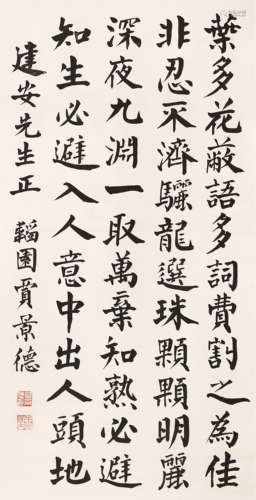 葉多花蔽語多詞費割之為佳
非忍不濟驪龍選珠顆顆明麗
深夜九淵一取萬棄知熟必避
知生必避入人意中出人頭地
建安先生正
韜園賈景德